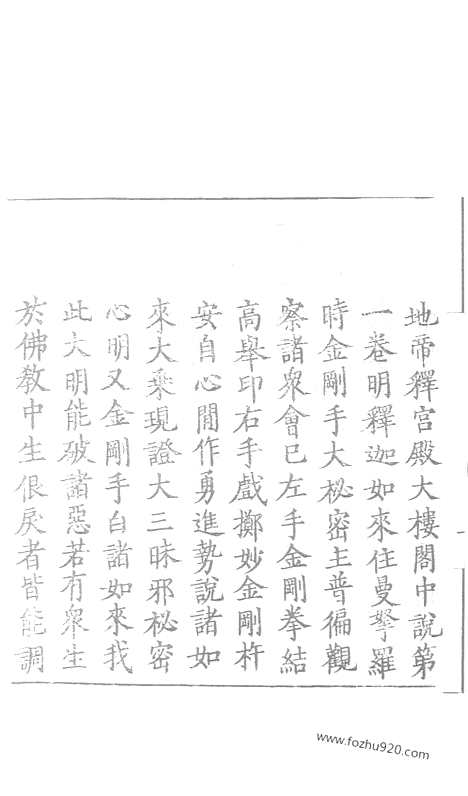 地帝釋宮殿大樓閣中說第
一卷明釋迦如來住曼拏羅
時金剛手大秘密主普徧觀
察諸眾會已左手金剛拳結
高舉印右手戲擲妙金剛杵
安自心閒作勇進勢說諸如
來大乘現證大三昧邪秘密
心明又金剛手白諸如來我
此大明能破諸惡若有眾生
於佛教中生佷戾者皆能調
www.fozhu920.com